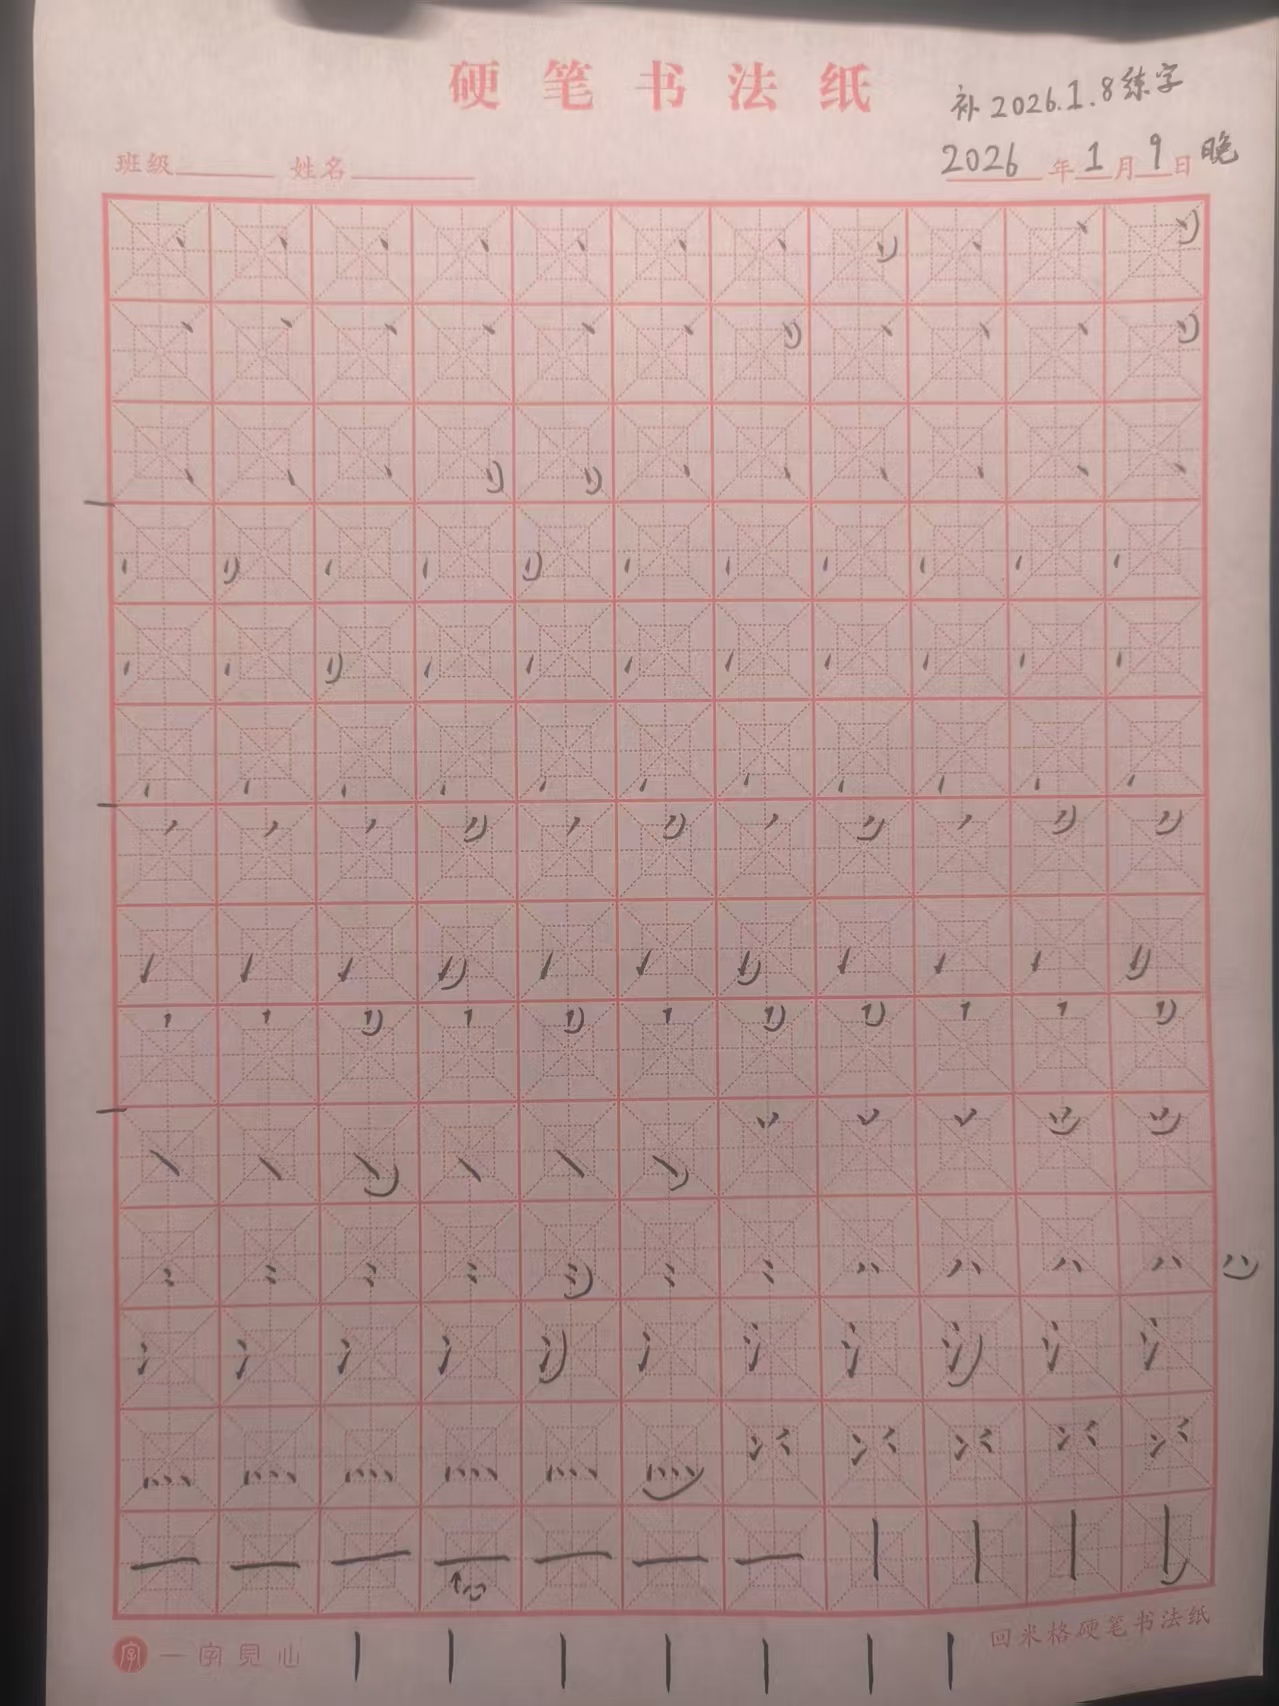 硬笔书法纸
补2026.1.8练字
班级 姓名 2026年1月9日晚
一字見心
回米格硬笔书法纸